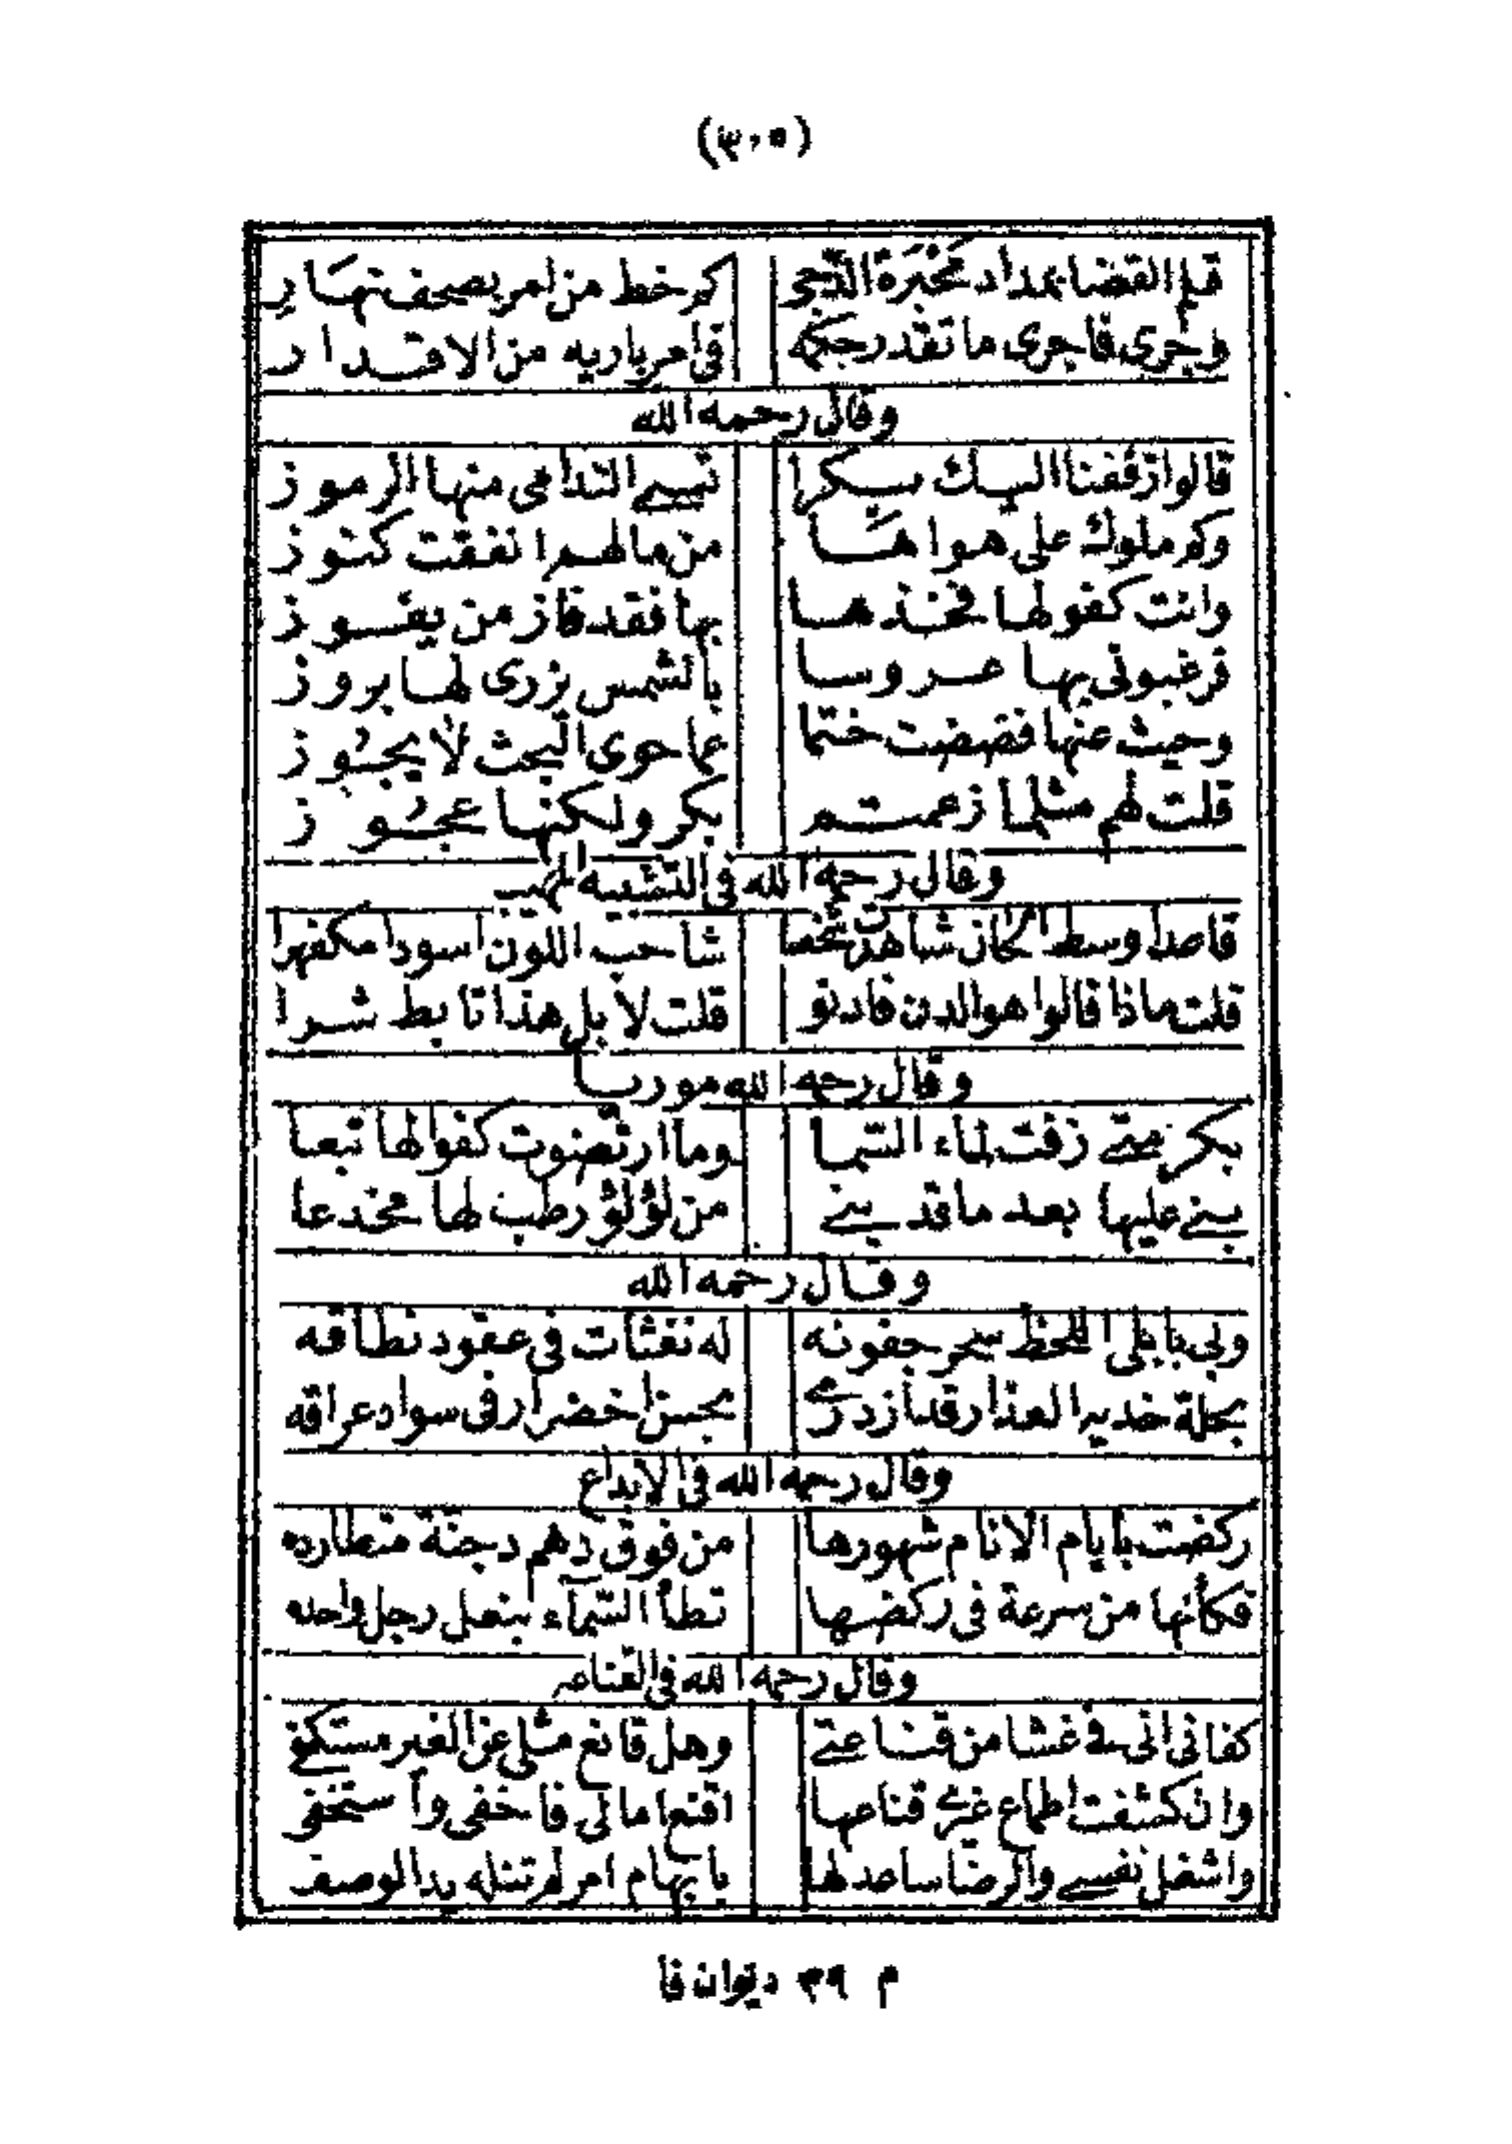 (٣٠٥)
قلم القضا بمداد محْبَرَة الدّجى كم خط من امر بصحف نهَار
وجرى فاجرى ما تقدر حكمه فى امر باريه من الاقدار
وقال رحمه الله
قالوا زففنا اليك بكرا تسبى الندامى منها الرموز
وكم ملوك على هواهَا من مالهم انفقت كنوز
وانت كفو لها فخذها بها فقد فاز من يفوز
فرغبونى بها عروسا بالشمس يزرى لها بروز
وحيث عنها فضضت ختما عما حوى البحث لا يجوز
قلت لهم مثلما زعمتم بكر ولكنها عجوز
وقال رحمه الله فى التشبيه
قاصدا وسط شاهدت شخصا شاحب اللون اسودا مكفهرا
قلت ماذا قالوا هو الدن فادنو قلت لا بل هذا تابط شرا
وقال رحمه الله موريا
بكر متى زفت لماء السّما وما ارتضوت كفوا لها تبعا
بنى عليها بعد ما قد بنى من لؤلؤ رطب لها مخدعا
وقال رحمه الله
وبى بابلى اللحظ سحر جفونه له نفثات فى عقود نطاقه
بحلة خديه العذار قد ازدرى بحسن اخضرار فى سواد عراقه
وقال رحمه الله فى الابداع
ركضت بايام الانام شهورها من فوق دهم دجنة متطارده
فكأنها من سرعة فى ركضها تطأ السّمآء بنعل رجل واحده
وقال رحمه الله فى القناعه
كفانى انى فى غشا من قناعتى وهل قانع مثلى عن الغير مستكفى
وان كشفت اطماع غيرى قناعها اقنع امالى فاخفى واستخفى
واشغل نفسى والرضا ساعد لها بابهام امر لم تنله يد الوصف
م ٣٩ ديوان فا